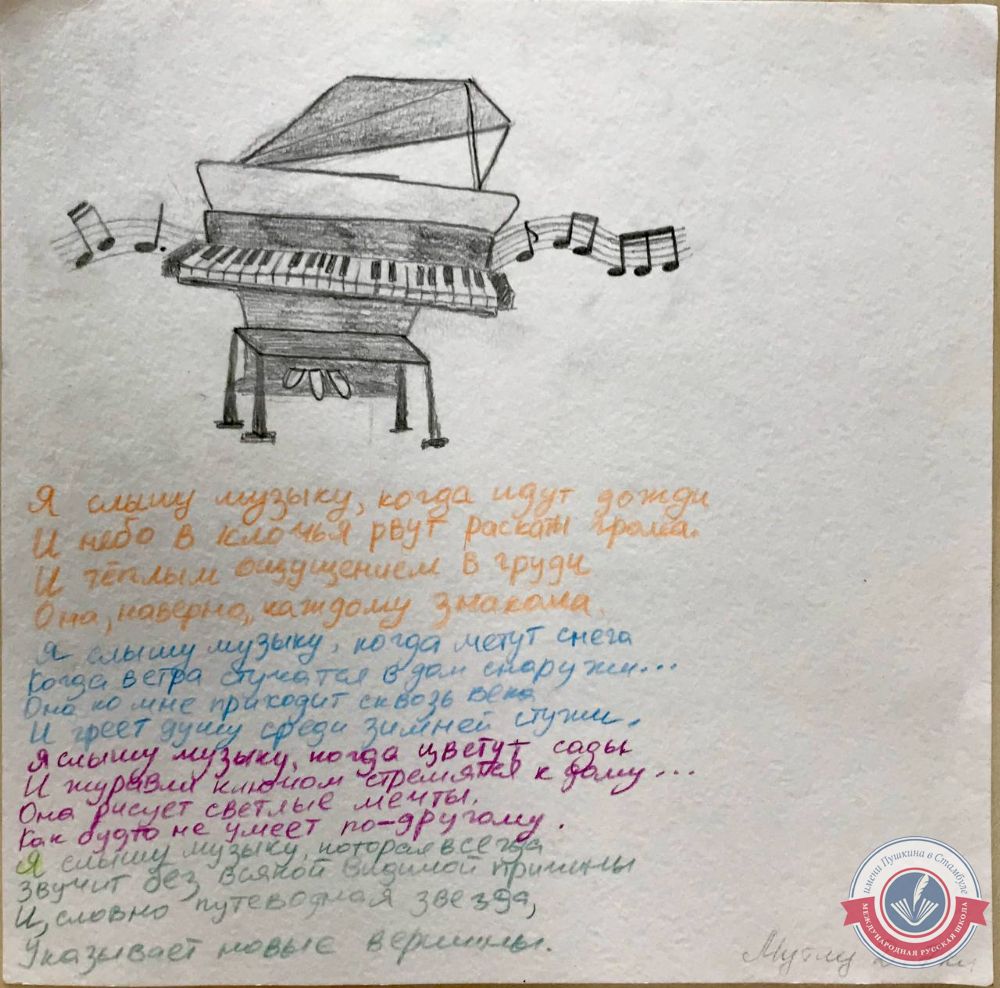 Я слышу музыку, когда идут дожди
И небо в клочья рвут раскаты грома.
И тёплым ощущением в груди
Она, наверно, каждому знакома.
Я слышу музыку, когда метут снега
Когда ветра стучатся в дом снаружи...
Она ко мне приходит сквозь века
И греет душу среди зимней стужи.
Я слышу музыку, когда цветут сады
И журавли клином стремятся к дому...
Она рисует светлые мечты.
Как будто не умеет по-другому.
Я слышу музыку, которая всегда
Звучит без всякой видимой причины
И, словно путеводная звезда,
Указывает новые вершины.
Мутлу
имени Пушкина в Стамбуле
МЕЖДУНАРОДНАЯ РУССКАЯ ШКОЛА